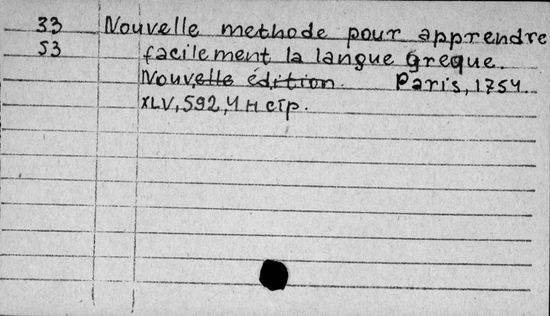 33 Nouvelle methode pour apprendre
53 facilement la langue Greque.
Nouvelle édition. Paris, 1754.
XLV, 592, 4 н стр.